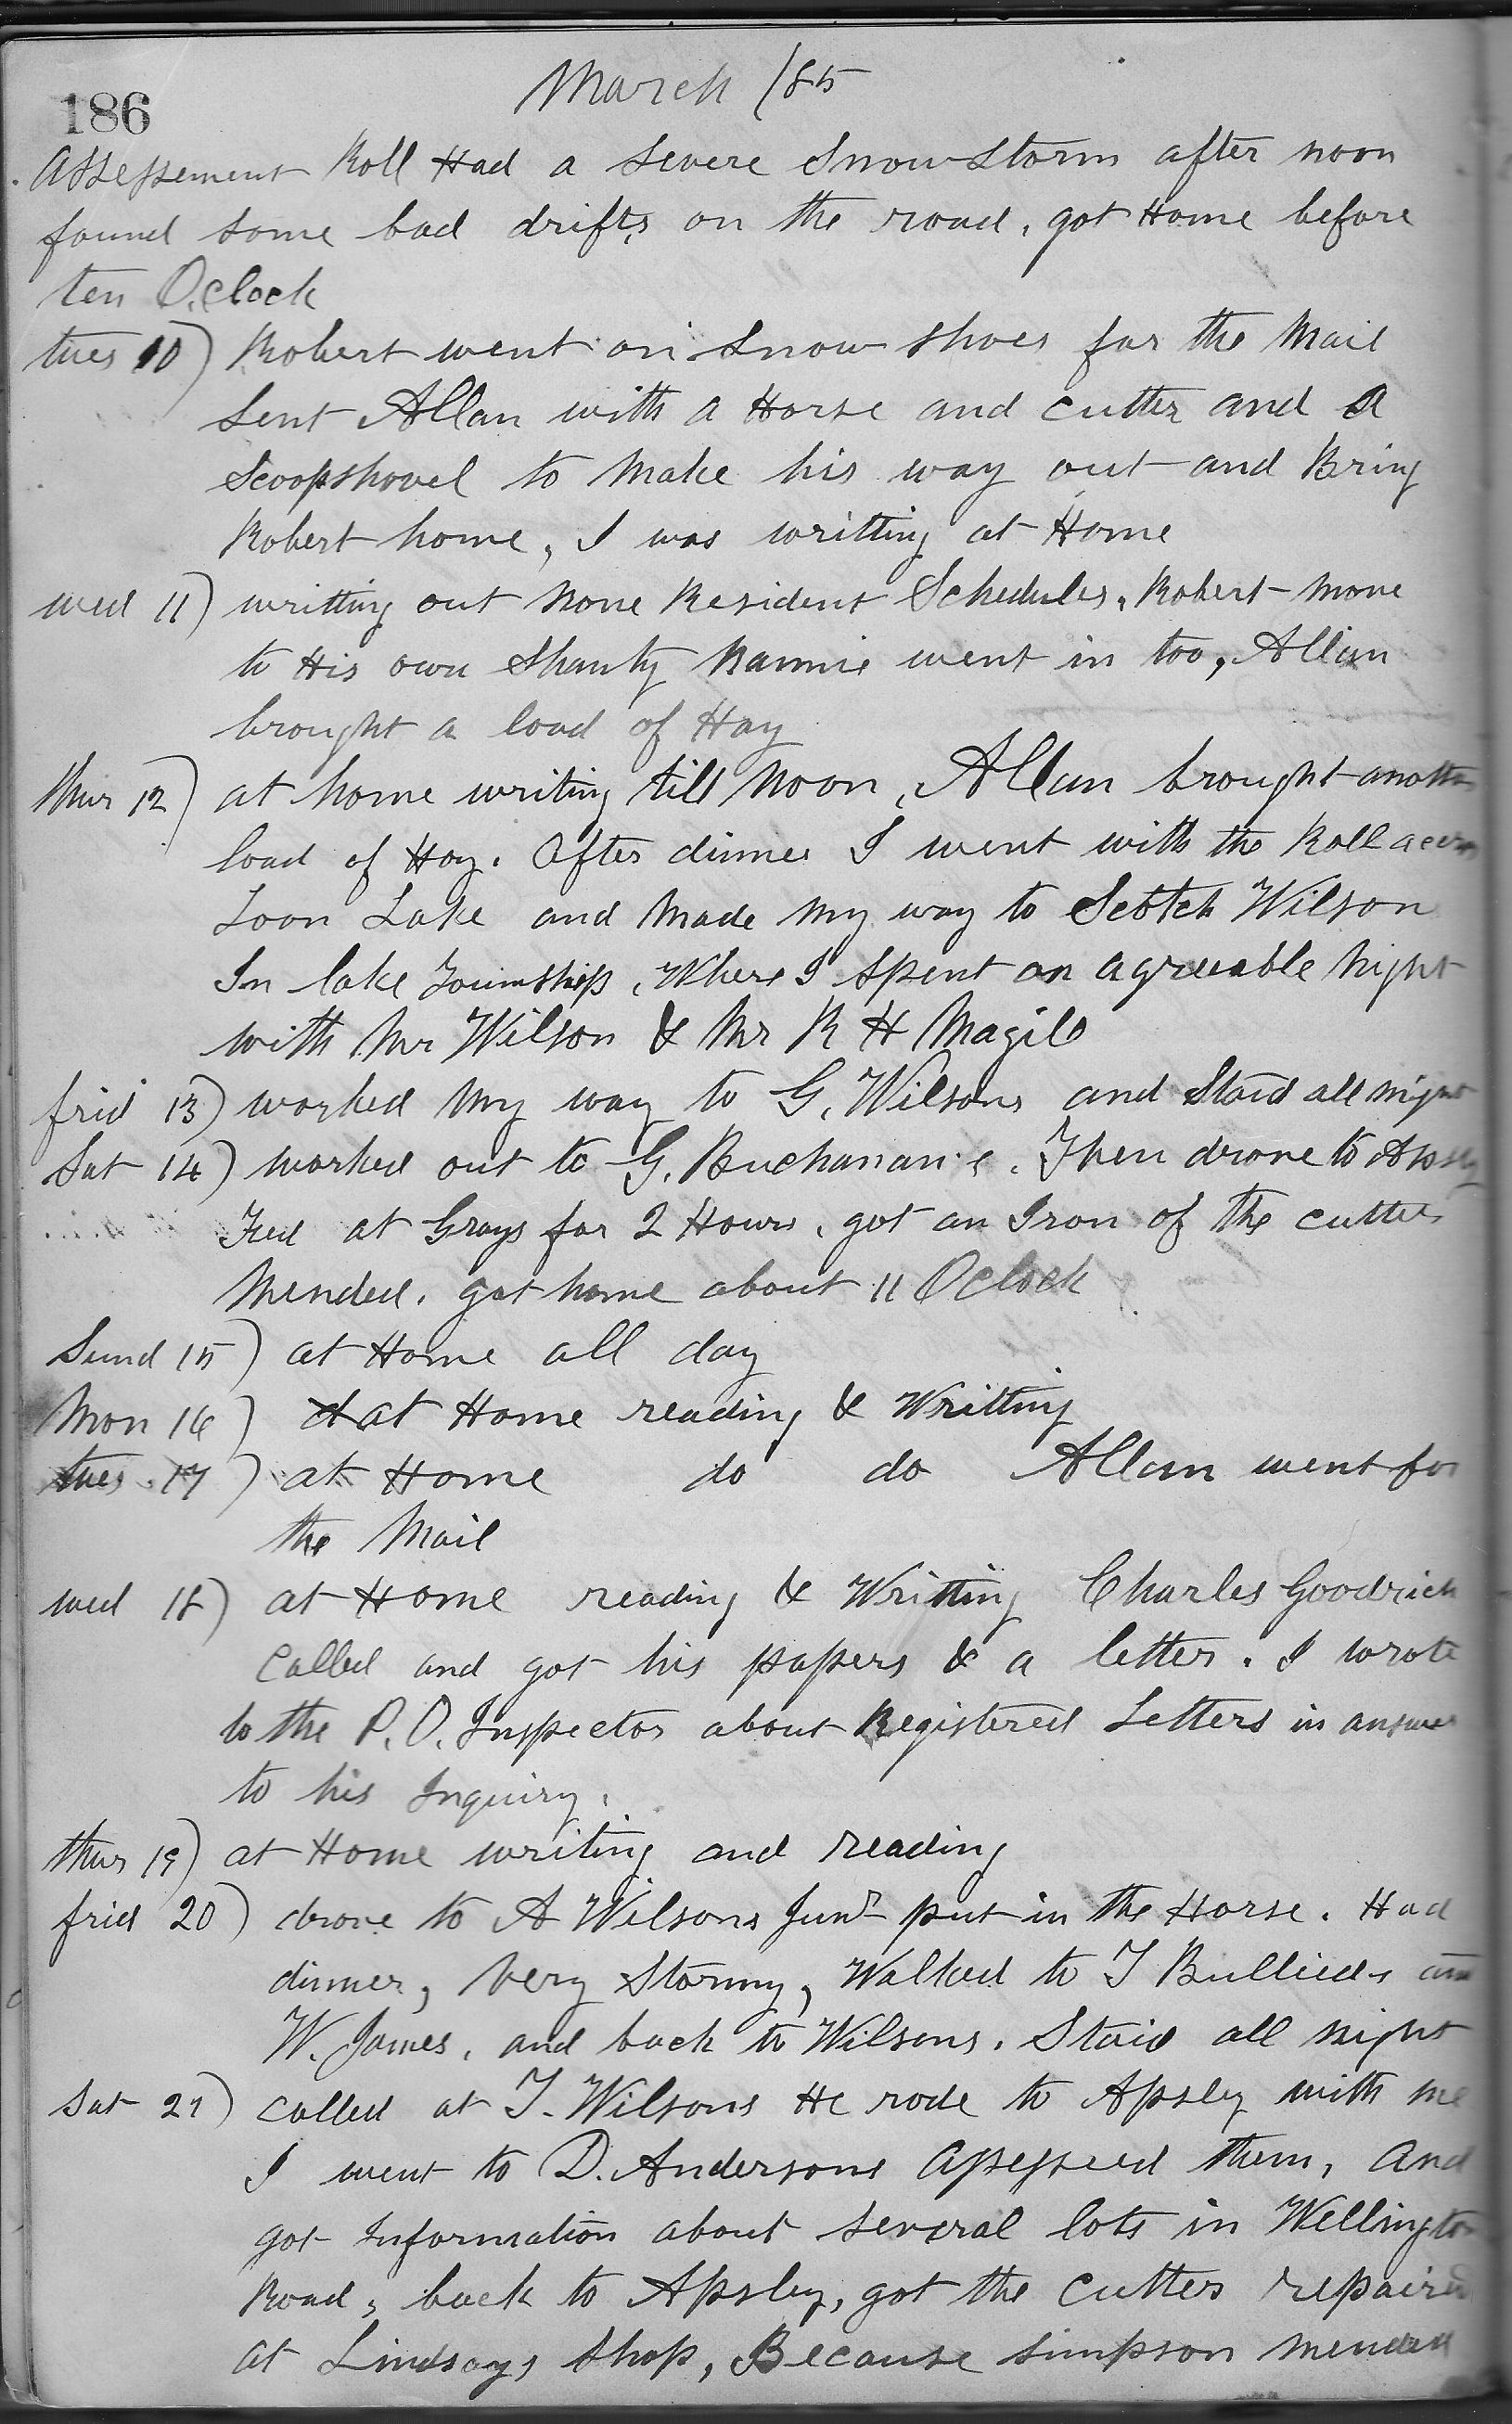 186
March /85
Assessement Roll Had a Severe Snow Storm after noon
found some bad drifts on the road, got Home before
ten O,clock
tues 10) Robert went on Snow Shoes for the Mail
Sent Allan with a Horse and cutter and a
Scoopshovel to Make his way out and Bring
Robert home, I was writting at Home
wed 11) writting out None Resident Schedules, Robert move
to His own Shanty Nannie went in too, Allan
brought a load of Hay
thur 12) at home writing till Noon, Allan brought another
load of Hay. After dinner I went with the Roll across
Loon Lake and Made My way to Scotch Wilson
In lake Township, Where I spent an agreeable Night
with Mr Wilson & Mr R H Magill
frid 13) worked My way to G. Wilsons and Staid all night
Sat 14) worked out to G. Buchanan's. Then drove to Apsley
Fed at Grays for 2 Hours, got an Iron of the cutter
Mended. got home about 11 Oclock
Sund 15) at Home all day
Mon 16) at Home reading & Writting
tues 17) at Home do do Allan went for
the Mail
wed 18) at Home reading & Writting Charles Goodrich
Called and got his papers & a letter. I wrote
to the P.O. Inspector about Registered Letters in answer
to his Inquiry.
thur 19) at Home writing and reading
frid 20) drove to A Wilsons Junr put in the Horse. Had
dinner, Very Stormy, Walked to T and
W. James, and back to Wilsons. Staid all night
Sat 21) Called at T. Wilsons He rode to Apsley with me
I went to D. Andersons Assessed them, And
got Information about several lots in Wellington
Road, back to Apsley, got the Cutter repaired
at Lindsays Shop, Because Simpson mended